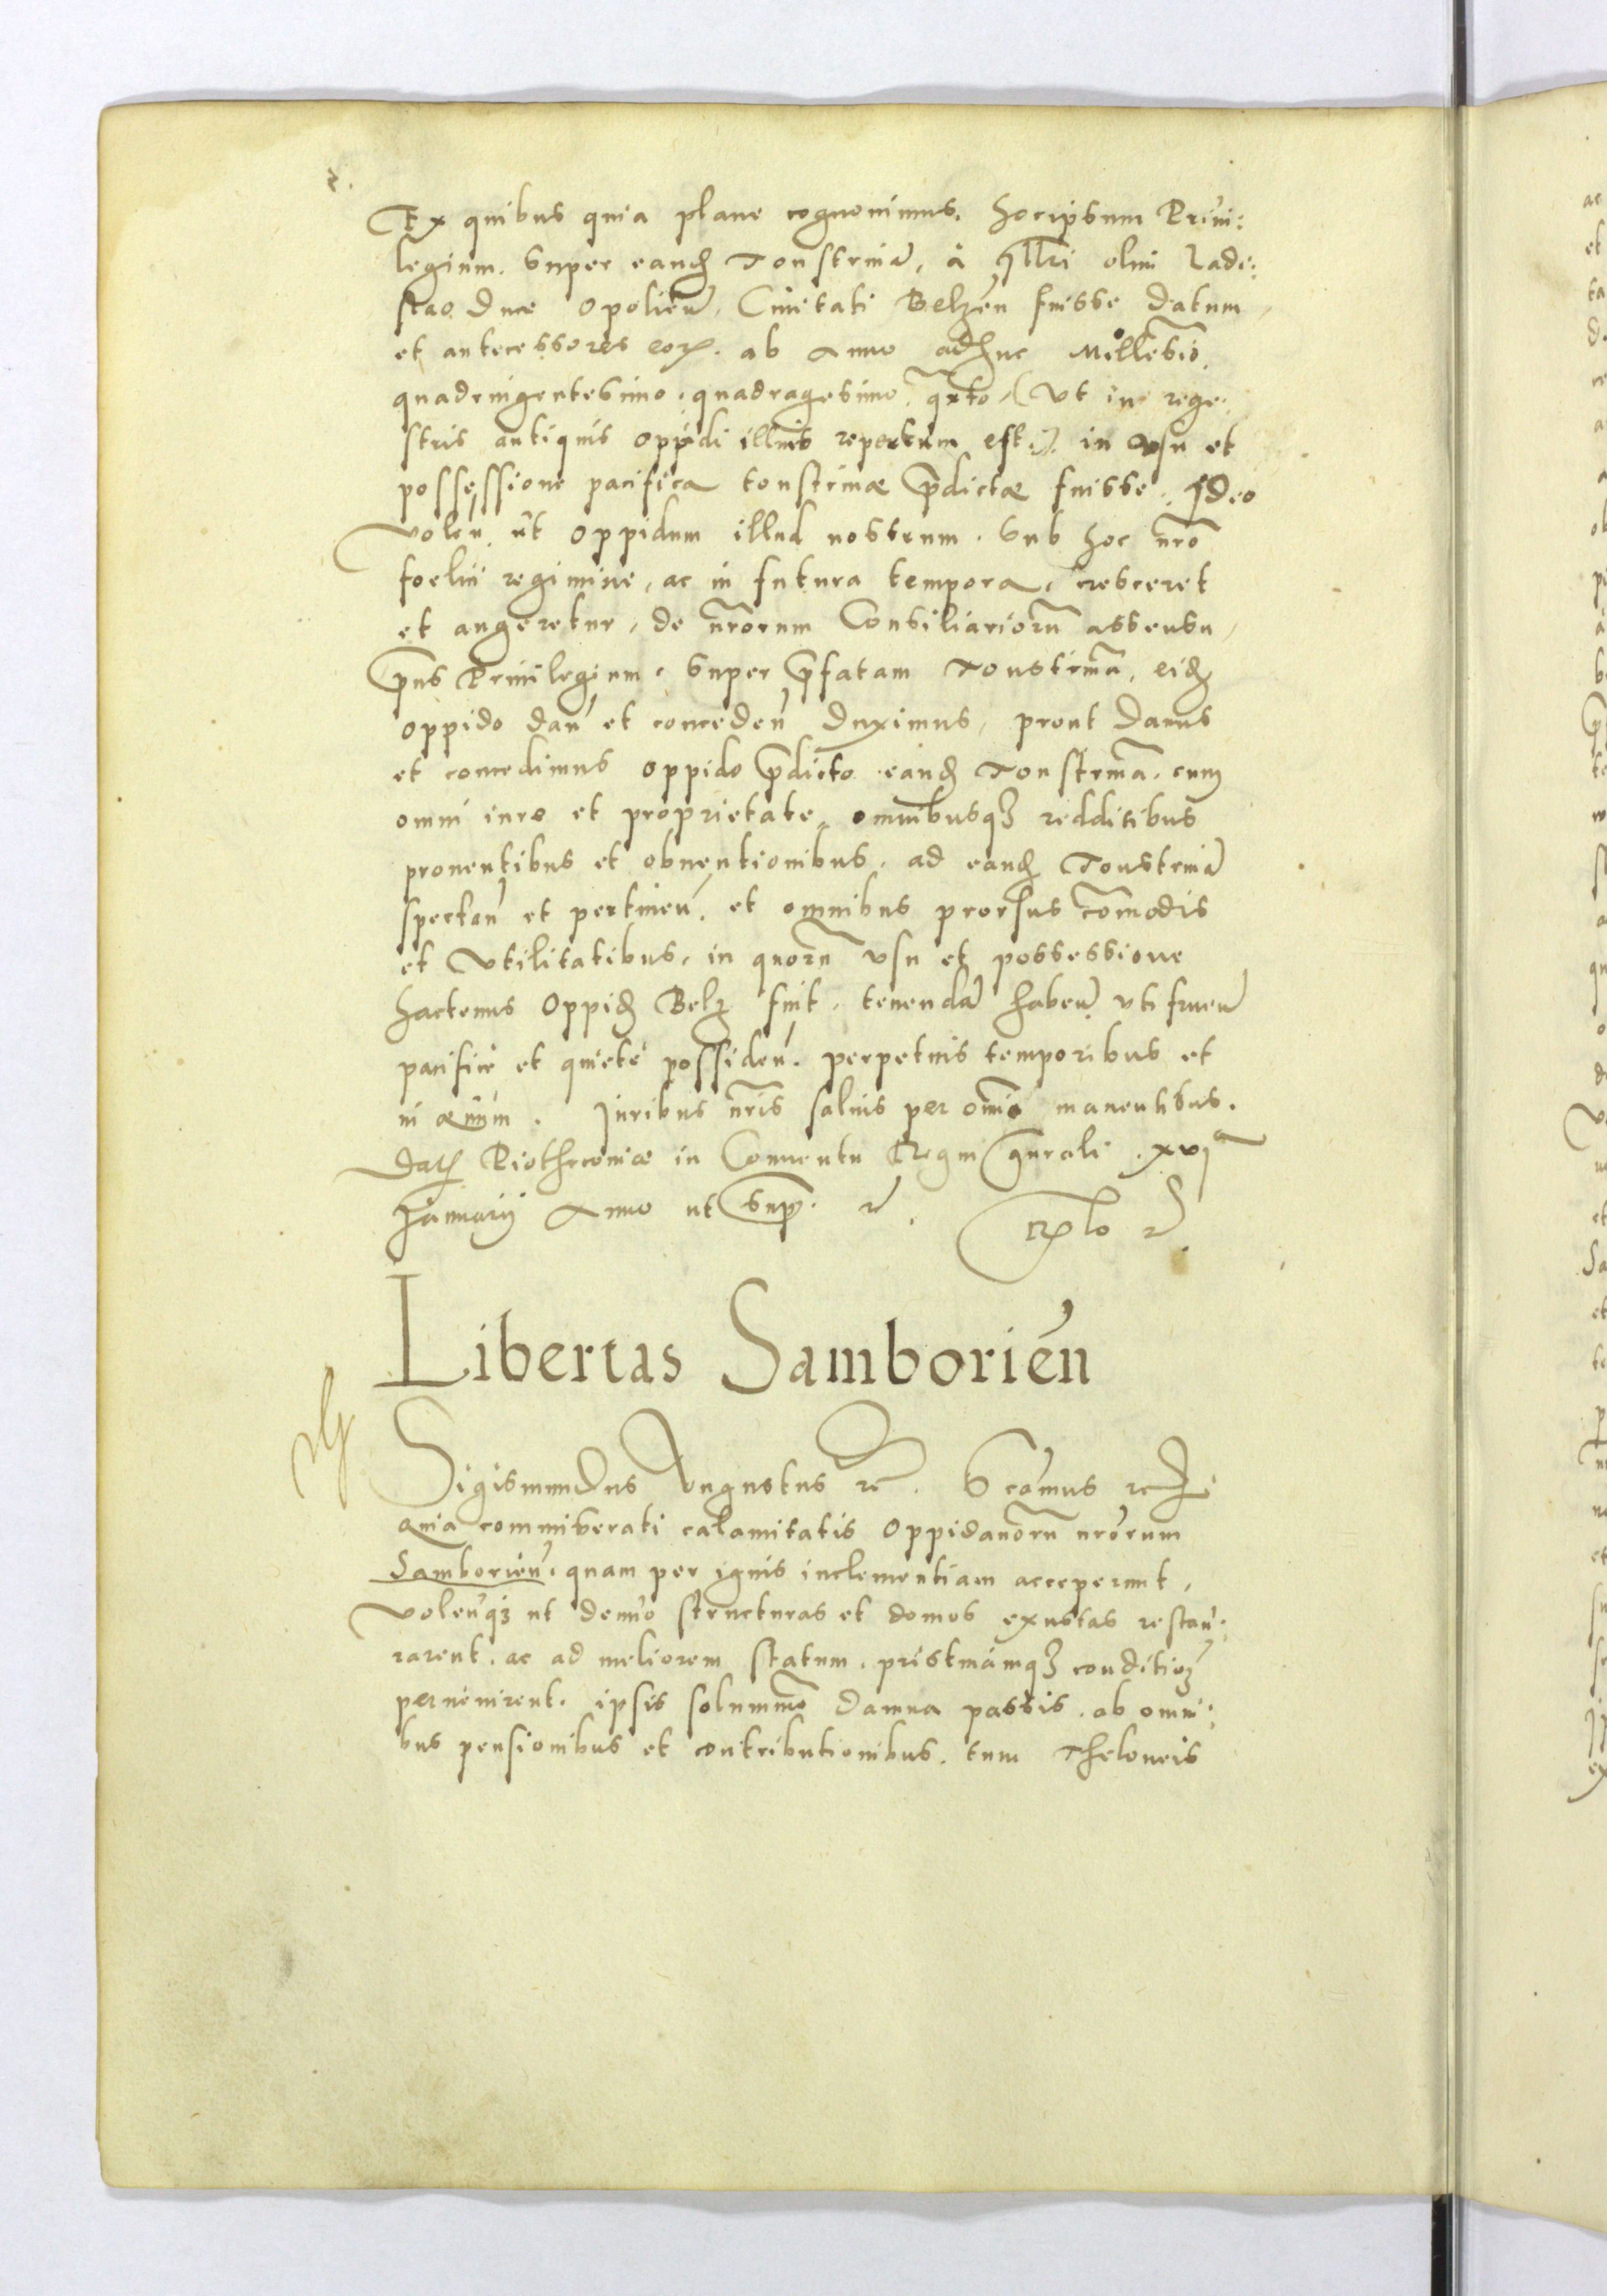 Ex quibus quia plane cognouimus. hocipsum Priui:
legium. super eandꝫ Tonstrinā, à Jllri olim Lade:
slao Duce Opolień, Ciuitati Belzeń fuisse datum,
et antecessores eoꝝ. ab Anno adhuc Millesiō.
quadringentesimo. quadragesimo qrto, (vt in rege:
stris antiquis oppidi illius repertum est.) in vsu et
possessione pacifica tonstrinæ p̄dictæ fuisse. Jdeo
Voleń, ut oppidum illud nostrum. sub hoc nrō
foelici regimine, ac in futura tempora, cresceret
et augeretur, de nrōrum Consiliariorū assensu,
p̄ns Priuilegium. super p̄fatam Tonstrinā, eidꝫ
oppido dań et concedeń duximus, prout damus
et concedimus oppido p̄dicto eandꝫ Tonstrinā. cum
omni iure et proprietate, omnibusqꝫ redditibus
prouentibus et obuentionibus. ad eandꝫ Tonstrinā
spectań et pertineń, et omnibus prorsus com̄odis
et vtilitatibus, in quorū vsu et possessione
hactenus Oppidꝫ Belz fuit. tenendā habeń vti frueń
pacificè et quietè possideń. perpetuis temporibus et
in æuum. Juribus nrīs saluis per omīa manentibus.
Datꝫ Piotrcouiæ in Conuentu Regni gn̄rali. xvj^a
Januarij Anno ut supꝫ. ꝛc. Rꝫlo ꝛc.
Libertas Samborień
Sigismundus Augustus ꝛc. Scāmus ꝛc. Qꝫ
quia commiserati calamitatis Oppidanorū nrōrum
Samborień. quam per ignis inclementiam acceperunt,
Voleńqꝫ ut denuo structuras et domos exustas restau:
rarent. ac ad meliorem statum. pristinámqꝫ conditioꝫ
peruenirent. ipsis solummō damna passis. ab omni:
bus pensionibus et contributionibus. tum Theloneis